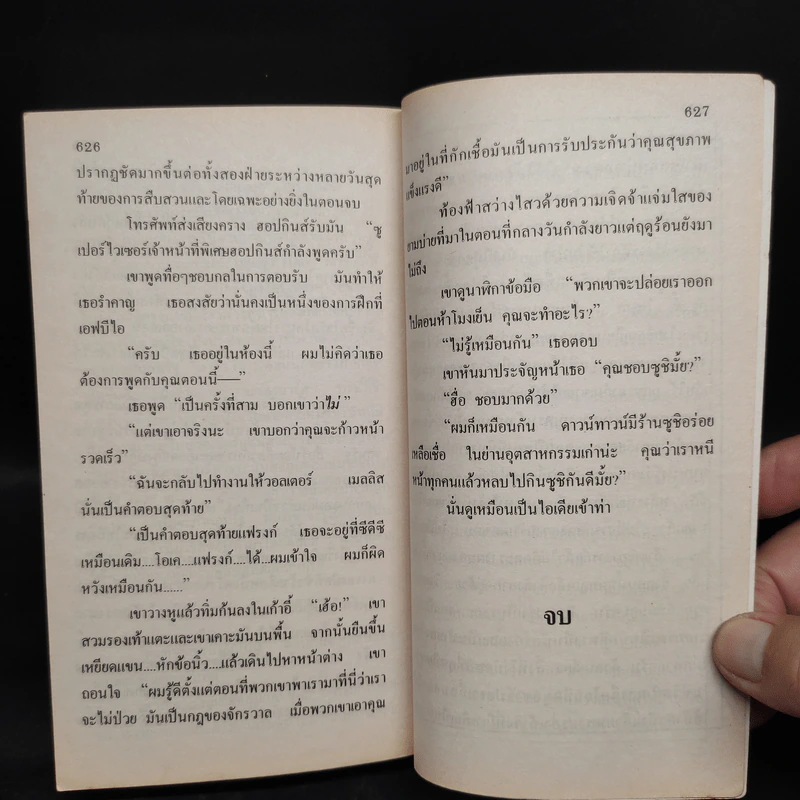 626
ปรากฏชัดมากขึ้นต่อทั้งสองฝ่ายระหว่างหลายวันสุด
ท้ายของการสืบสวนและโดยเฉพาะอย่างยิ่งในตอนจบ
โทรศัพท์ส่งเสียงคราง ฮอปกินส์รับมัน “ซู
เปอร์ไวเซอร์เจ้าหน้าที่พิเศษฮอปกินส์กำลังพูดครับ”
เขาพูดทื่อๆชอบกลในการตอบรับ มันทำให้
เธอรำคาญ เธอสงสัยว่านั่นคงเป็นหนึ่งของการฝึกที่
เอฟบีไอ
“ครับ เธออยู่ในห้องนี้ ผมไม่คิดว่าเธอ
ต้องการพูดกับคุณตอนนี้—–”
เธอพูด “เป็นครั้งที่สาม บอกเขาว่าไม่”
“แต่เขาเอาจริงนะ เขาบอกว่าคุณจะก้าวหน้า
รวดเร็ว”
“ฉันจะกลับไปทำงานให้วอลเตอร์ เมลลิส
นั่นเป็นคำตอบสุดท้าย”
“เป็นคำตอบสุดท้ายแฟรงก์ เธอจะอยู่ที่ซีดีซี
เหมือนเดิม....โอเค....แฟรงก์....ได้...ผมเข้าใจ ผมก็ผิด
หวังเหมือนกัน......”
เขาวางหูแล้วทิ่มก้นลงในเก้าอี้ “เฮ้อ!” เขา
สวมรองเท้าแตะและเขาเคาะมันบนพื้น จากนั้นยืนขึ้น
เหยียดแขน....หักข้อนิ้ว....แล้วเดินไปหาหน้าต่าง เขา
ถอนใจ “ผมรู้ดีตั้งแต่ตอนที่พวกเขาพาเรามาที่นี่ว่าเรา
จะไม่ป่วย มันเป็นกฎของจักรวาล เมื่อพวกเขาเอาคุณ
627
มาอยู่ในที่กักเชื้อมันเป็นการรับประกันว่าคุณสุขภาพ
แข็งแรงดี”
ท้องฟ้าสว่างไสวด้วยความเจิดจ้าแจ่มใสของ
ยามบ่ายที่มาในตอนที่กลางวันกำลังยาวแต่ฤดูร้อนยังมา
ไม่ถึง
เขาดูนาฬิกาข้อมือ “พวกเขาจะปล่อยเราออก
ไปตอนห้าโมงเย็น คุณจะทำอะไร?”
“ไม่รู้เหมือนกัน” เธอตอบ
เขาหันมาประจัญหน้าเธอ “คุณชอบซูชิมั้ย?”
“ฮื่อ ชอบมากด้วย”
“ผมก็เหมือนกัน ดาวน์ทาวน์มีร้านซูชิอร่อย
เหลือเชื่อ ในย่านอุตสาหกรรมเก่าน่ะ คุณว่าเราหนี
หน้าทุกคนแล้วหลบไปกินซูชิกันดีมั้ย?”
นั่นดูเหมือนเป็นไอเดียเข้าท่า
จบ